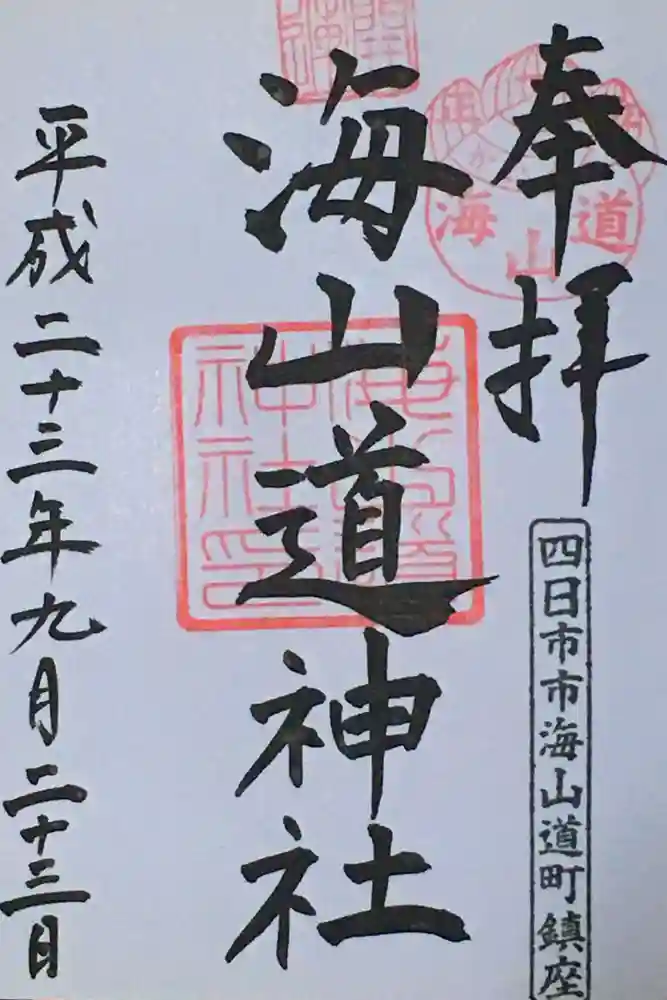 奉拝
海山道
四日市市海山道町鎮座
海山道神社
海山道神社印
平成二十三年九月二十三日